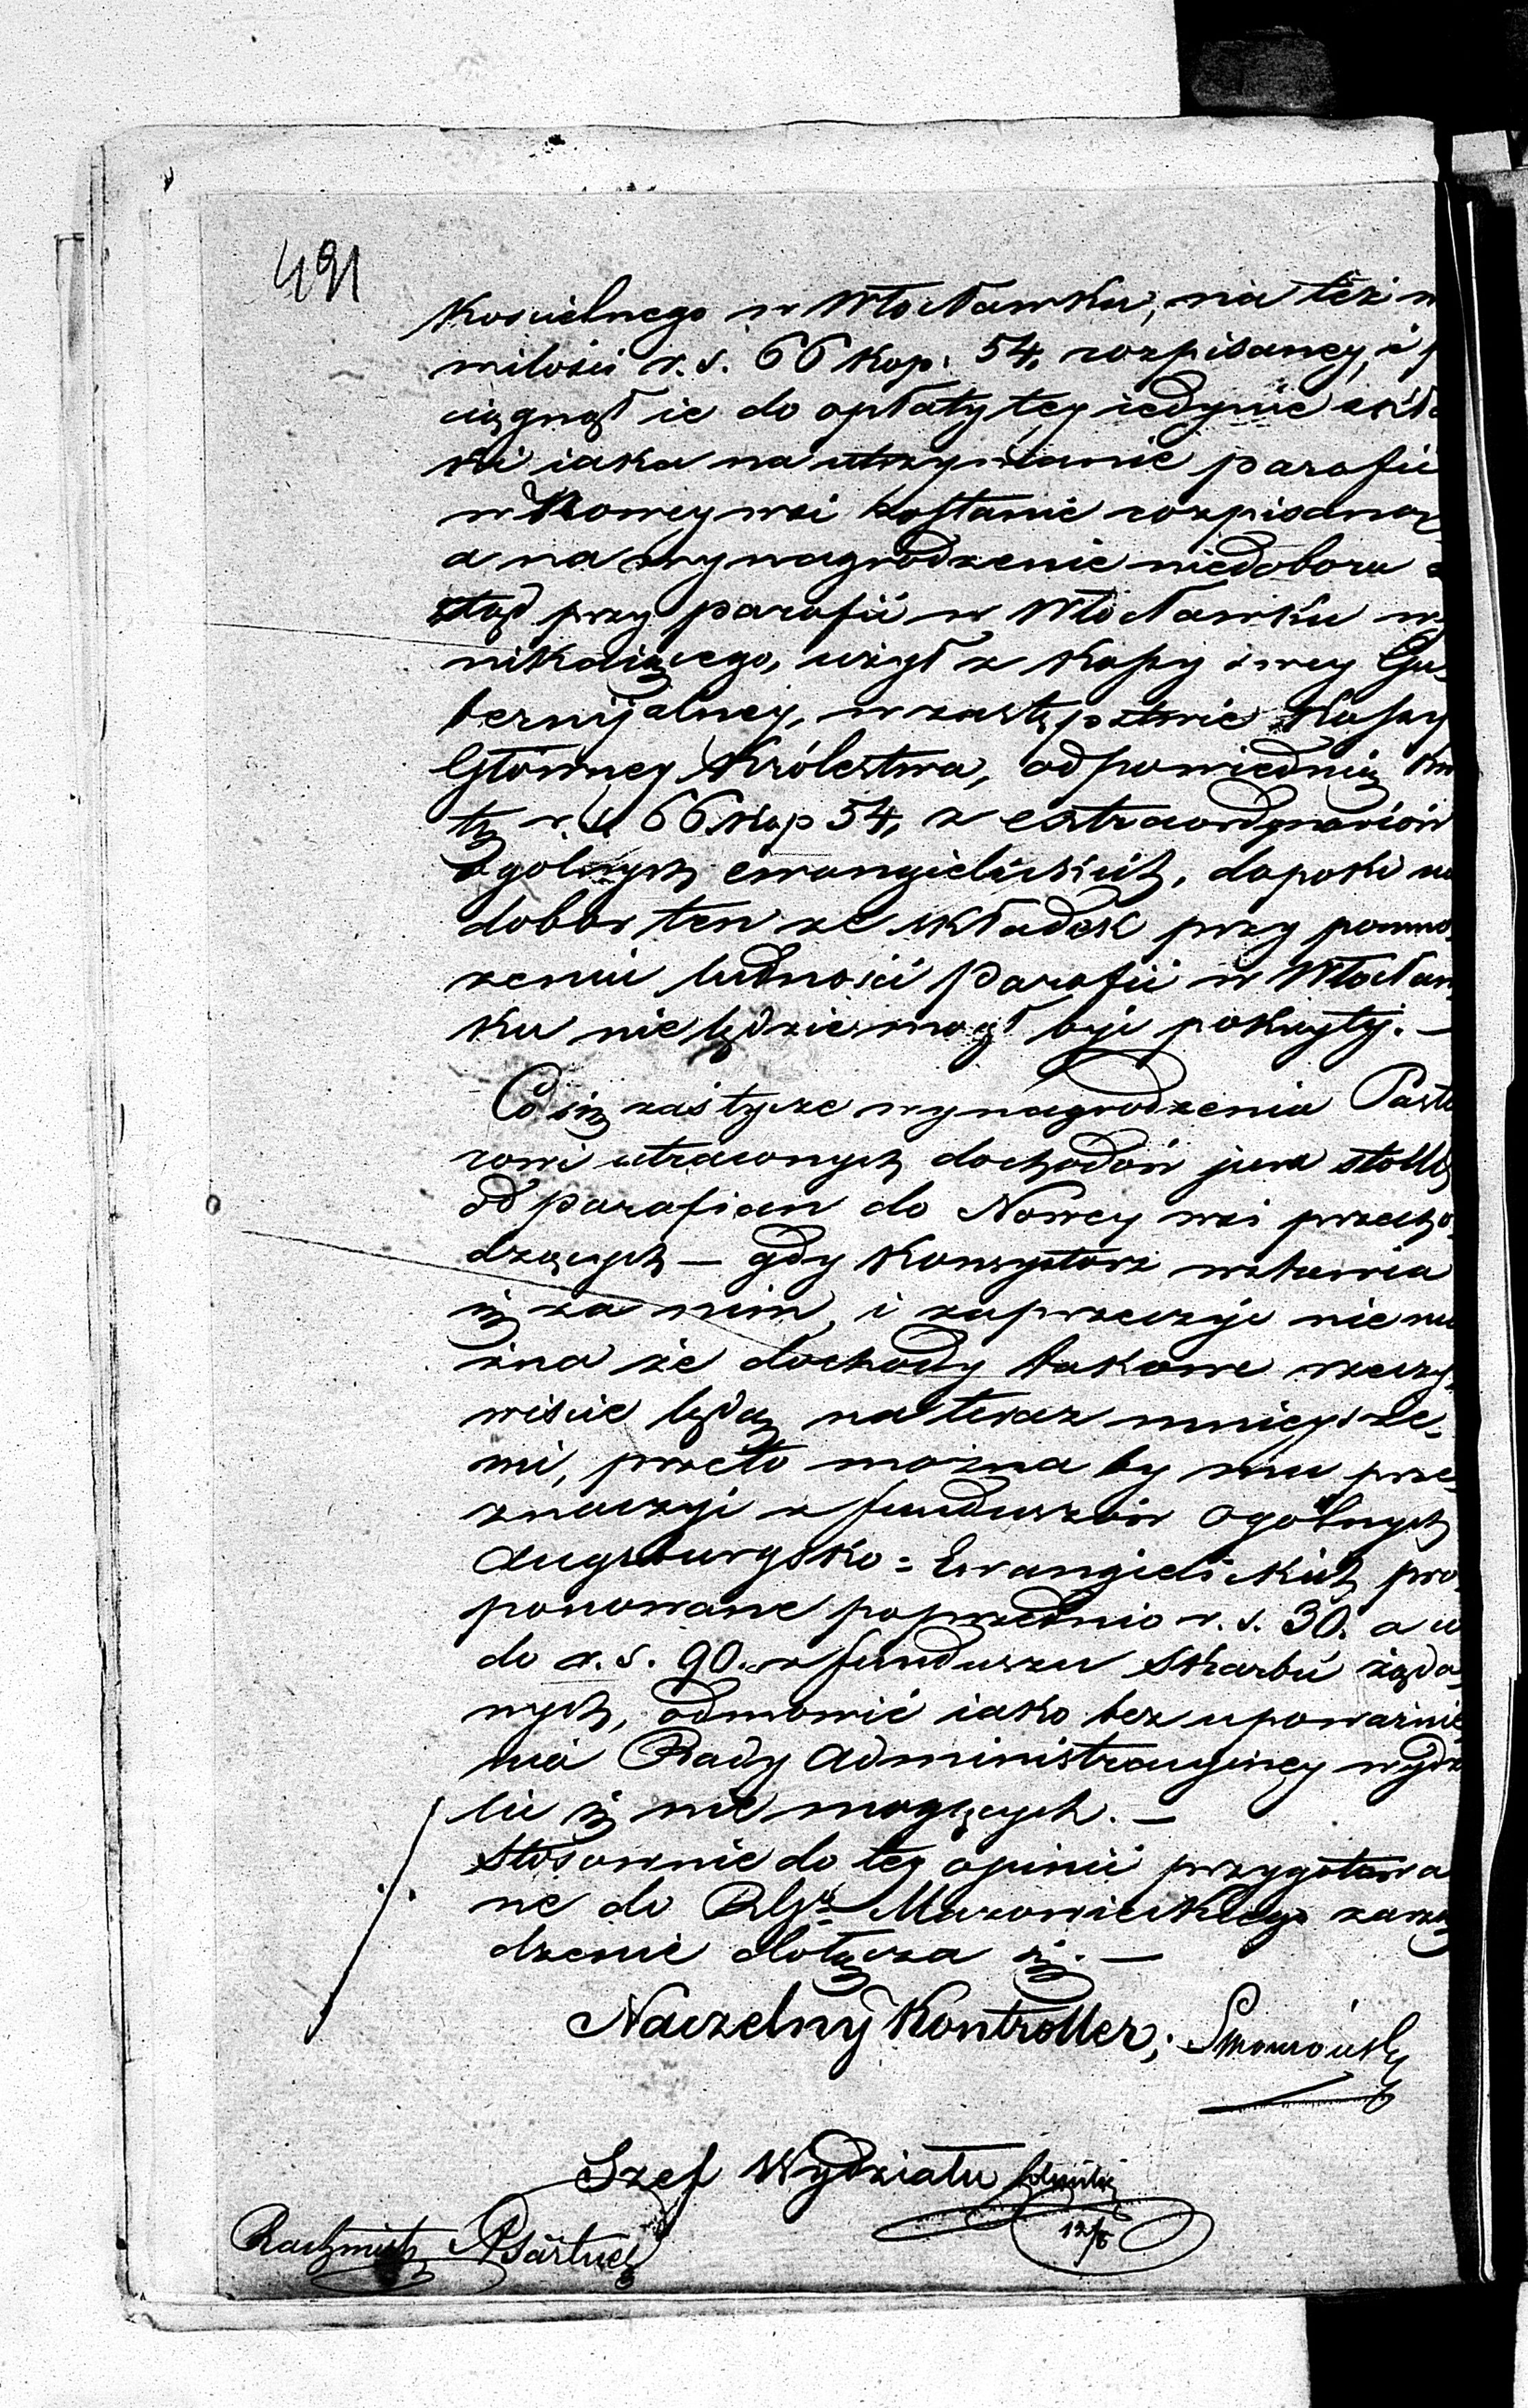 491
Kościelnego w Włocławku, na też
miłości r. s. 66 kop. 54, rozpisaney, i
ciągnął ie do opłaty tey iedynie skła
ki iaka na utrzymanie parafii
w Nowey wsi zostanie rozpisaną
a na wynagrodzenie niedoboru
ztąd przy parafii w Włocławku wy
nikaiącego, użył z Kassy swey Gu
bernijalney, w zastępstwie Kassy
Główney Królestwa, odpowiednią kwo
tę r. s. 66 kop 54, z extraordynariów
ogólnych ewangielickich, dopoki nie
dobór ten ze składek przy pomno
żeniu ludności Parafii w Włocław
ku nie będzie mógł być pokryty. —
Co się zaś tycze wynagrodzenia Pasto
rowi utraconych dochodów jura stollæ
od parafian do Nowey wsi przecho
dzących — gdy Konsystorz wstawia
się za nim, i zaprzeczyć nie mo
żna że dochody takowe rzeczy
wiście będą na teraz mnieysze
mi, przeto można by mu prze
znaczyć z funduszów ogólnych
Augsburgsko = Ewangielickich pro
ponowane poprzednio r. s. 30. a co
do r. s. 90. z funduszu Skarbu żąda
nych, odmówić iako bez upoważnie
nia Rady Administracyiney wydzie
lić się nie mogących. —
Stosownie do tey opinii przygotowa
ne do Rządu Mazowieckiego zarzą
dzenie dołącza się. —
Naczelny Kontroller,
Szef Wydziału
12/6
Rachmistrz